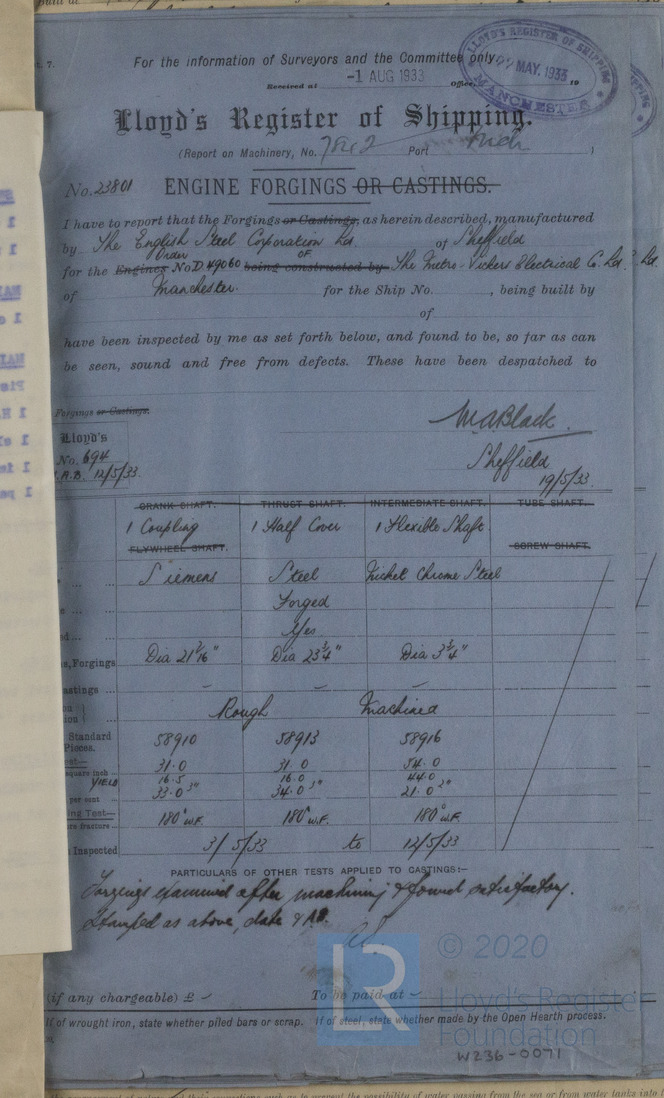 t. 7.
For the information of Surveyors and the Committee only.
Received at -1 AUG 1933 Office, 19
LLOYD'S REGISTER OF SHIPPING
MAY. 1933
MANCHESTER
Lloyd's Register of Shipping.
(Report on Machinery, No. Port )
No. 23801 ENGINE FORGINGS OR CASTINGS.
I have to report that the Forgings or Castings, as herein described, manufactured
by The English Steel Corporation Ltd. of Sheffield
Order OF
for the Engines No D.49060 being constructed by The Metro-Vickers Electrical Co. Ltd.
of Manchester. for the Ship No. , being built by
of
have been inspected by me as set forth below, and found to be, so far as can
be seen, sound and free from defects. These have been despatched to
Forgings or Castings.
Lloyd's
No. 694
A.B. 12/5/33.
W A Black
Sheffield
19/5/33.
CRANK SHAFT. THRUST SHAFT. INTERMEDIATE SHAFT. TUBE SHAFT.
1 Coupling 1 Half Cover 1 Flexible Shaft
FLYWHEEL SHAFT. SCREW SHAFT.
Siemens Steel Nickel Chrome Steel
Forged
Yes
s, Forgings Dia 21 3/16" Dia 23 1/4" Dia 3 3/4"
astings ... - - -
Rough Machined
Standard
Pieces. 58910 58913 58916
31.0 31.0 54.0
square inch
YIELD 16.5 16.0 44.0
per cent 33.0 3" 34.0 3" 21.0 2"
ng Test— 180° W.F. 180° W.F. 180° W.F.
re fracture
Inspected 3/5/33 to 12/5/33
PARTICULARS OF OTHER TESTS APPLIED TO CASTINGS:—
Forgings examined after machining & found satisfactory.
Stamped as above, date & AB.
(if any chargeable) £ - To be paid at -
If of wrought iron, state whether piled bars or scrap. If of steel, state whether made by the Open Hearth process.
LR
© 2020
Lloyd's Register
Foundation
W236-0071